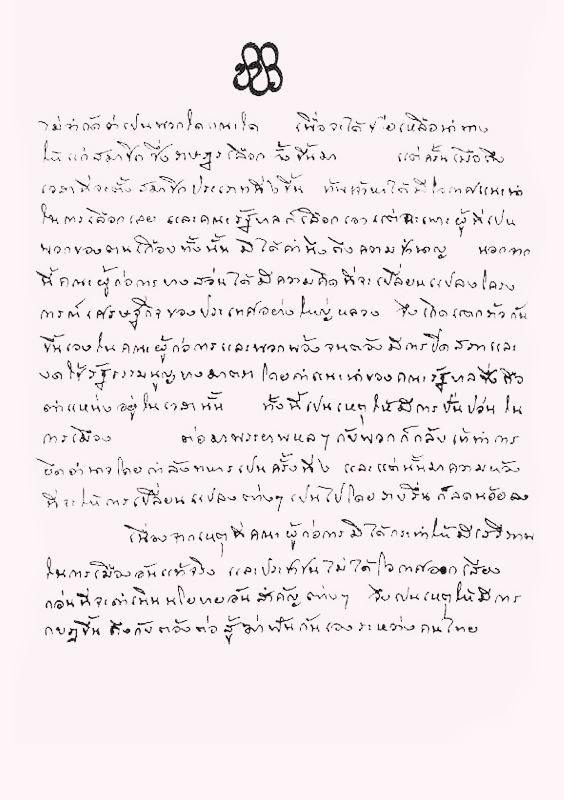 ไม่จำกัดว่าเป็นพวกใดคณะใด เพื่อจะได้ช่วยเหลือนำทาง
ให้แก่สมาชิกซึ่งราษฎรเลือกตั้งขึ้นมา แต่ครั้นเมื่อถึง
เวลาที่จะตั้งสมาชิกประเภทที่ ๒ ขึ้น ข้าพเจ้าหาได้มีโอกาสแนะนำ
ในการเลือกเลย และคณะรัฐบาลก็เลือกเอาแต่ฉะเพาะผู้ที่เป็น
พวกของตนเกือบทั้งนั้น มิได้คำนึงถึงความชำนาญ นอกจาก
นี้คณะผู้ก่อการบางส่วนได้มีความคิดที่จะเปลี่ยนแปลงโครง
การณ์เศรษฐกิจของประเทศอย่างใหญ่หลวง จึงเกิดแตกร้าวกัน
ขึ้นเองในคณะผู้ก่อการและพวกพ้องจนต้องมีการปิดสภาและ
งดใช้รัฐธรรมนูญบางมาตรา โดยคำแนะนำของคณะรัฐบาลซึ่งถือ
ตำแหน่งอยู่ในเวลานั้น ทั้งนี้เป็นเหตุให้มีการปั่นป่วนใน
การเมือง ต่อมาพระยาพหลฯ กับพวกก็กลับเข้าทำการ
ยึดอำนาจโดยกำลังทหารเป็นครั้งที่ ๒ และแต่นั้นมาความหวัง
ที่จะให้การเปลี่ยนแปลงต่างๆ เป็นไปโดยราบรื่นก็ลดน้อยลง
เนื่องจากเหตุที่คณะผู้ก่อการมิได้กระทำให้มีเสรีภาพ
ในการเมืองอันแท้จริง และประชาชนไม่ได้โอกาสออกเสียง
ก่อนที่จะดำเนินนโยบายอันสำคัญต่างๆ จึงเป็นเหตุให้มีการ
กบฏขึ้น ถึงกับต้องต่อสู้ฆ่าฟันกันเองระหว่างคนไทย